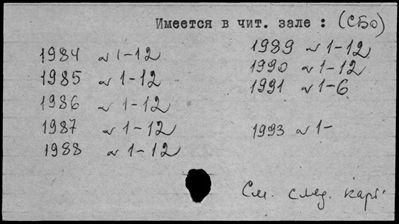 Имеется в чит. зале : (СБО)
1984 № 1-12
1985 № 1-12
1986 № 1-12
1987 № 1-12
1988 № 1-12
1989 № 1-12
1990 № 1-12
1991 № 1-6
1993 № 1-
См. след. карт.